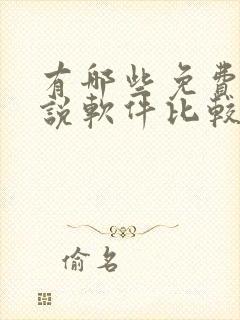 有哪些免費
說軟件比較
偷名